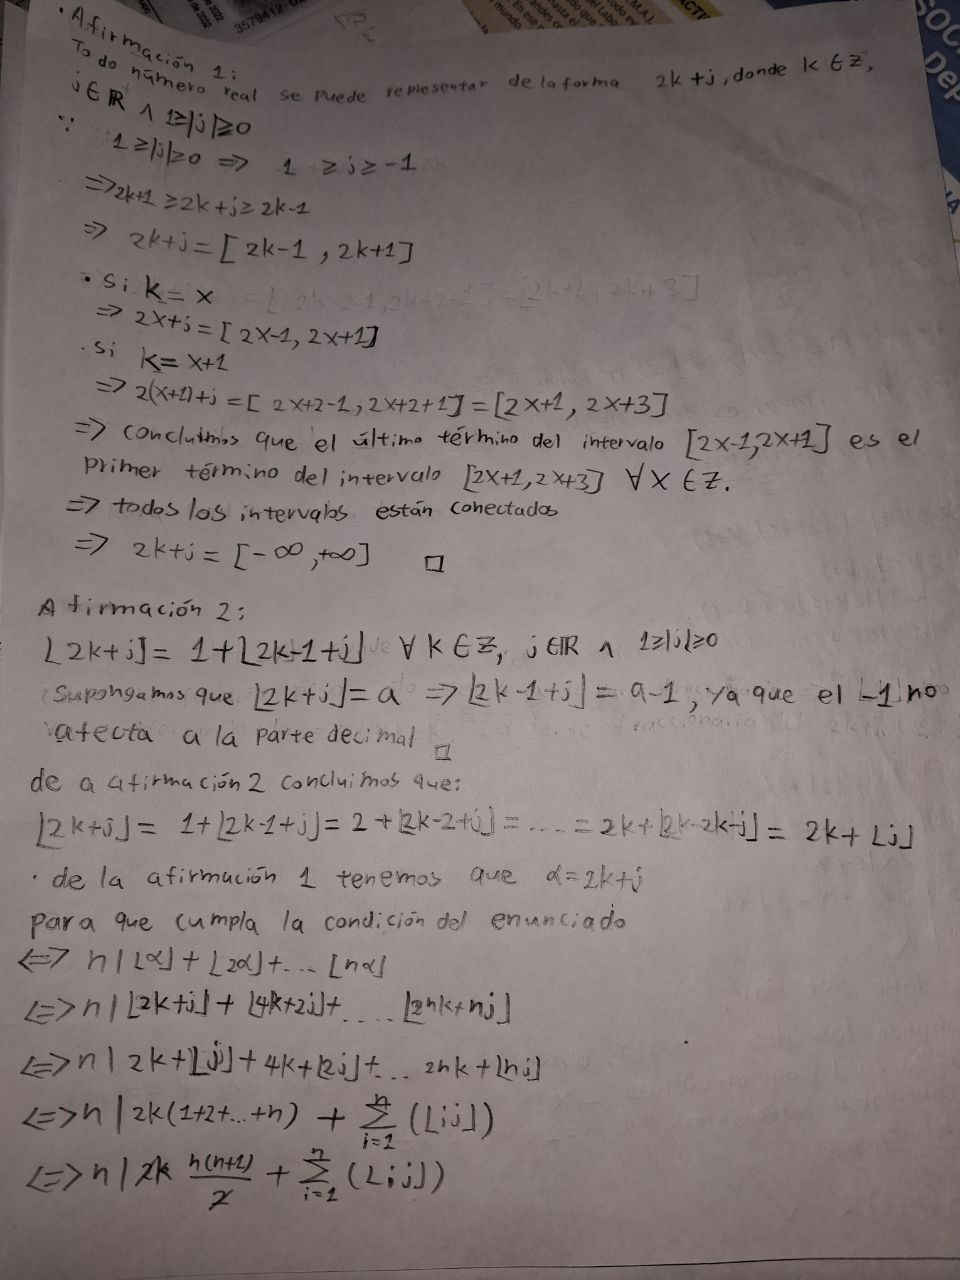 3579412
· Afirmación 1:
Todo número real se puede representar de la forma 2k+j, donde k ∈ Z,
j ∈ R ∧ 1≥|j|≥0
∵ 1≥|j|≥0 ⇒ 1 ≥ j ≥ -1
⇒ 2k+1 ≥ 2k+j ≥ 2k-1
⇒ 2k+j = [2k-1, 2k+1]
· Si k = x
⇒ 2x+j = [2x-1, 2x+1]
· si k = x+1
⇒ 2(x+1)+j = [2x+2-1, 2x+2+1] = [2x+1, 2x+3]
⇒ concluimos que el último término del intervalo [2x-1,2x+1] es el
primer término del intervalo [2x+1,2x+3] ∀ x ∈ Z.
⇒ todos los intervalos están conectados
⇒ 2k+j = [-∞, +∞] □
Afirmación 2:
⌊2k+j⌋ = 1+⌊2k-1+j⌋ ∀ k ∈ Z, j ∈ R ∧ 1≥|j|≥0
Supongamos que ⌊2k+j⌋ = a ⇒ ⌊2k-1+j⌋ = a-1, ya que el -1 no
afecta a la parte decimal □
de a afirmación 2 concluimos que:
⌊2k+j⌋ = 1+⌊2k-1+j⌋ = 2+⌊2k-2+j⌋ = .... = 2k+⌊2k-2k+j⌋ = 2k+⌊j⌋
· de la afirmación 1 tenemos que α=2k+j
para que cumpla la condición del enunciado
⇔ n | ⌊α⌋ + ⌊2α⌋ + ... ⌊nα⌋
⇔ n | ⌊2k+j⌋ + ⌊4k+2j⌋ + .... ⌊2nk+nj⌋
⇔ n | 2k+⌊j⌋ + 4k+⌊2j⌋ + ... 2nk+⌊nj⌋
⇔ n | 2k(1+2+...+n) + ∑_{i=1}^{n} (⌊ij⌋)
⇔ n | 2k n(n+1)/2 + ∑_{i=1}^{n} (⌊ij⌋)